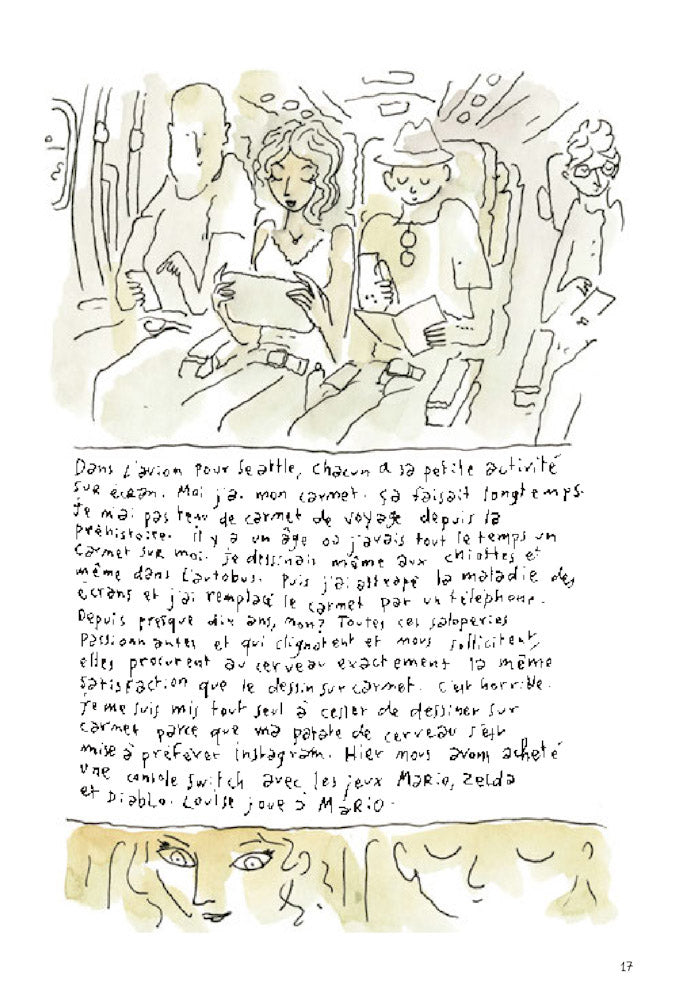 Dans l'avion pour Seattle, chacun a sa petite activité
sur écran. Moi j'ai mon carnet. ça faisait longtemps.
Je n'ai pas tenu de carnet de voyage depuis la
préhistoire. il y a un âge où j'avais tout le temps un
carnet sur moi. je dessinais même aux chiottes et
même dans l'autobus. Puis j'ai attrapé la maladie des
écrans et j'ai remplacé le carnet par un téléphone.
Depuis presque dix ans, non? Toutes ces saloperies
passionnantes et qui clignotent et nous sollicitent,
elles procurent au cerveau exactement la même
satisfaction que le dessin sur carnet. C'est horrible.
je me suis mis tout seul à cesser de dessiner sur
carnet parce que ma patate de cerveau s'est
mise à préférer instagram. Hier nous avons acheté
une console switch avec les jeux Mario, Zelda
et Diablo. Louise joue à MARIO.
17